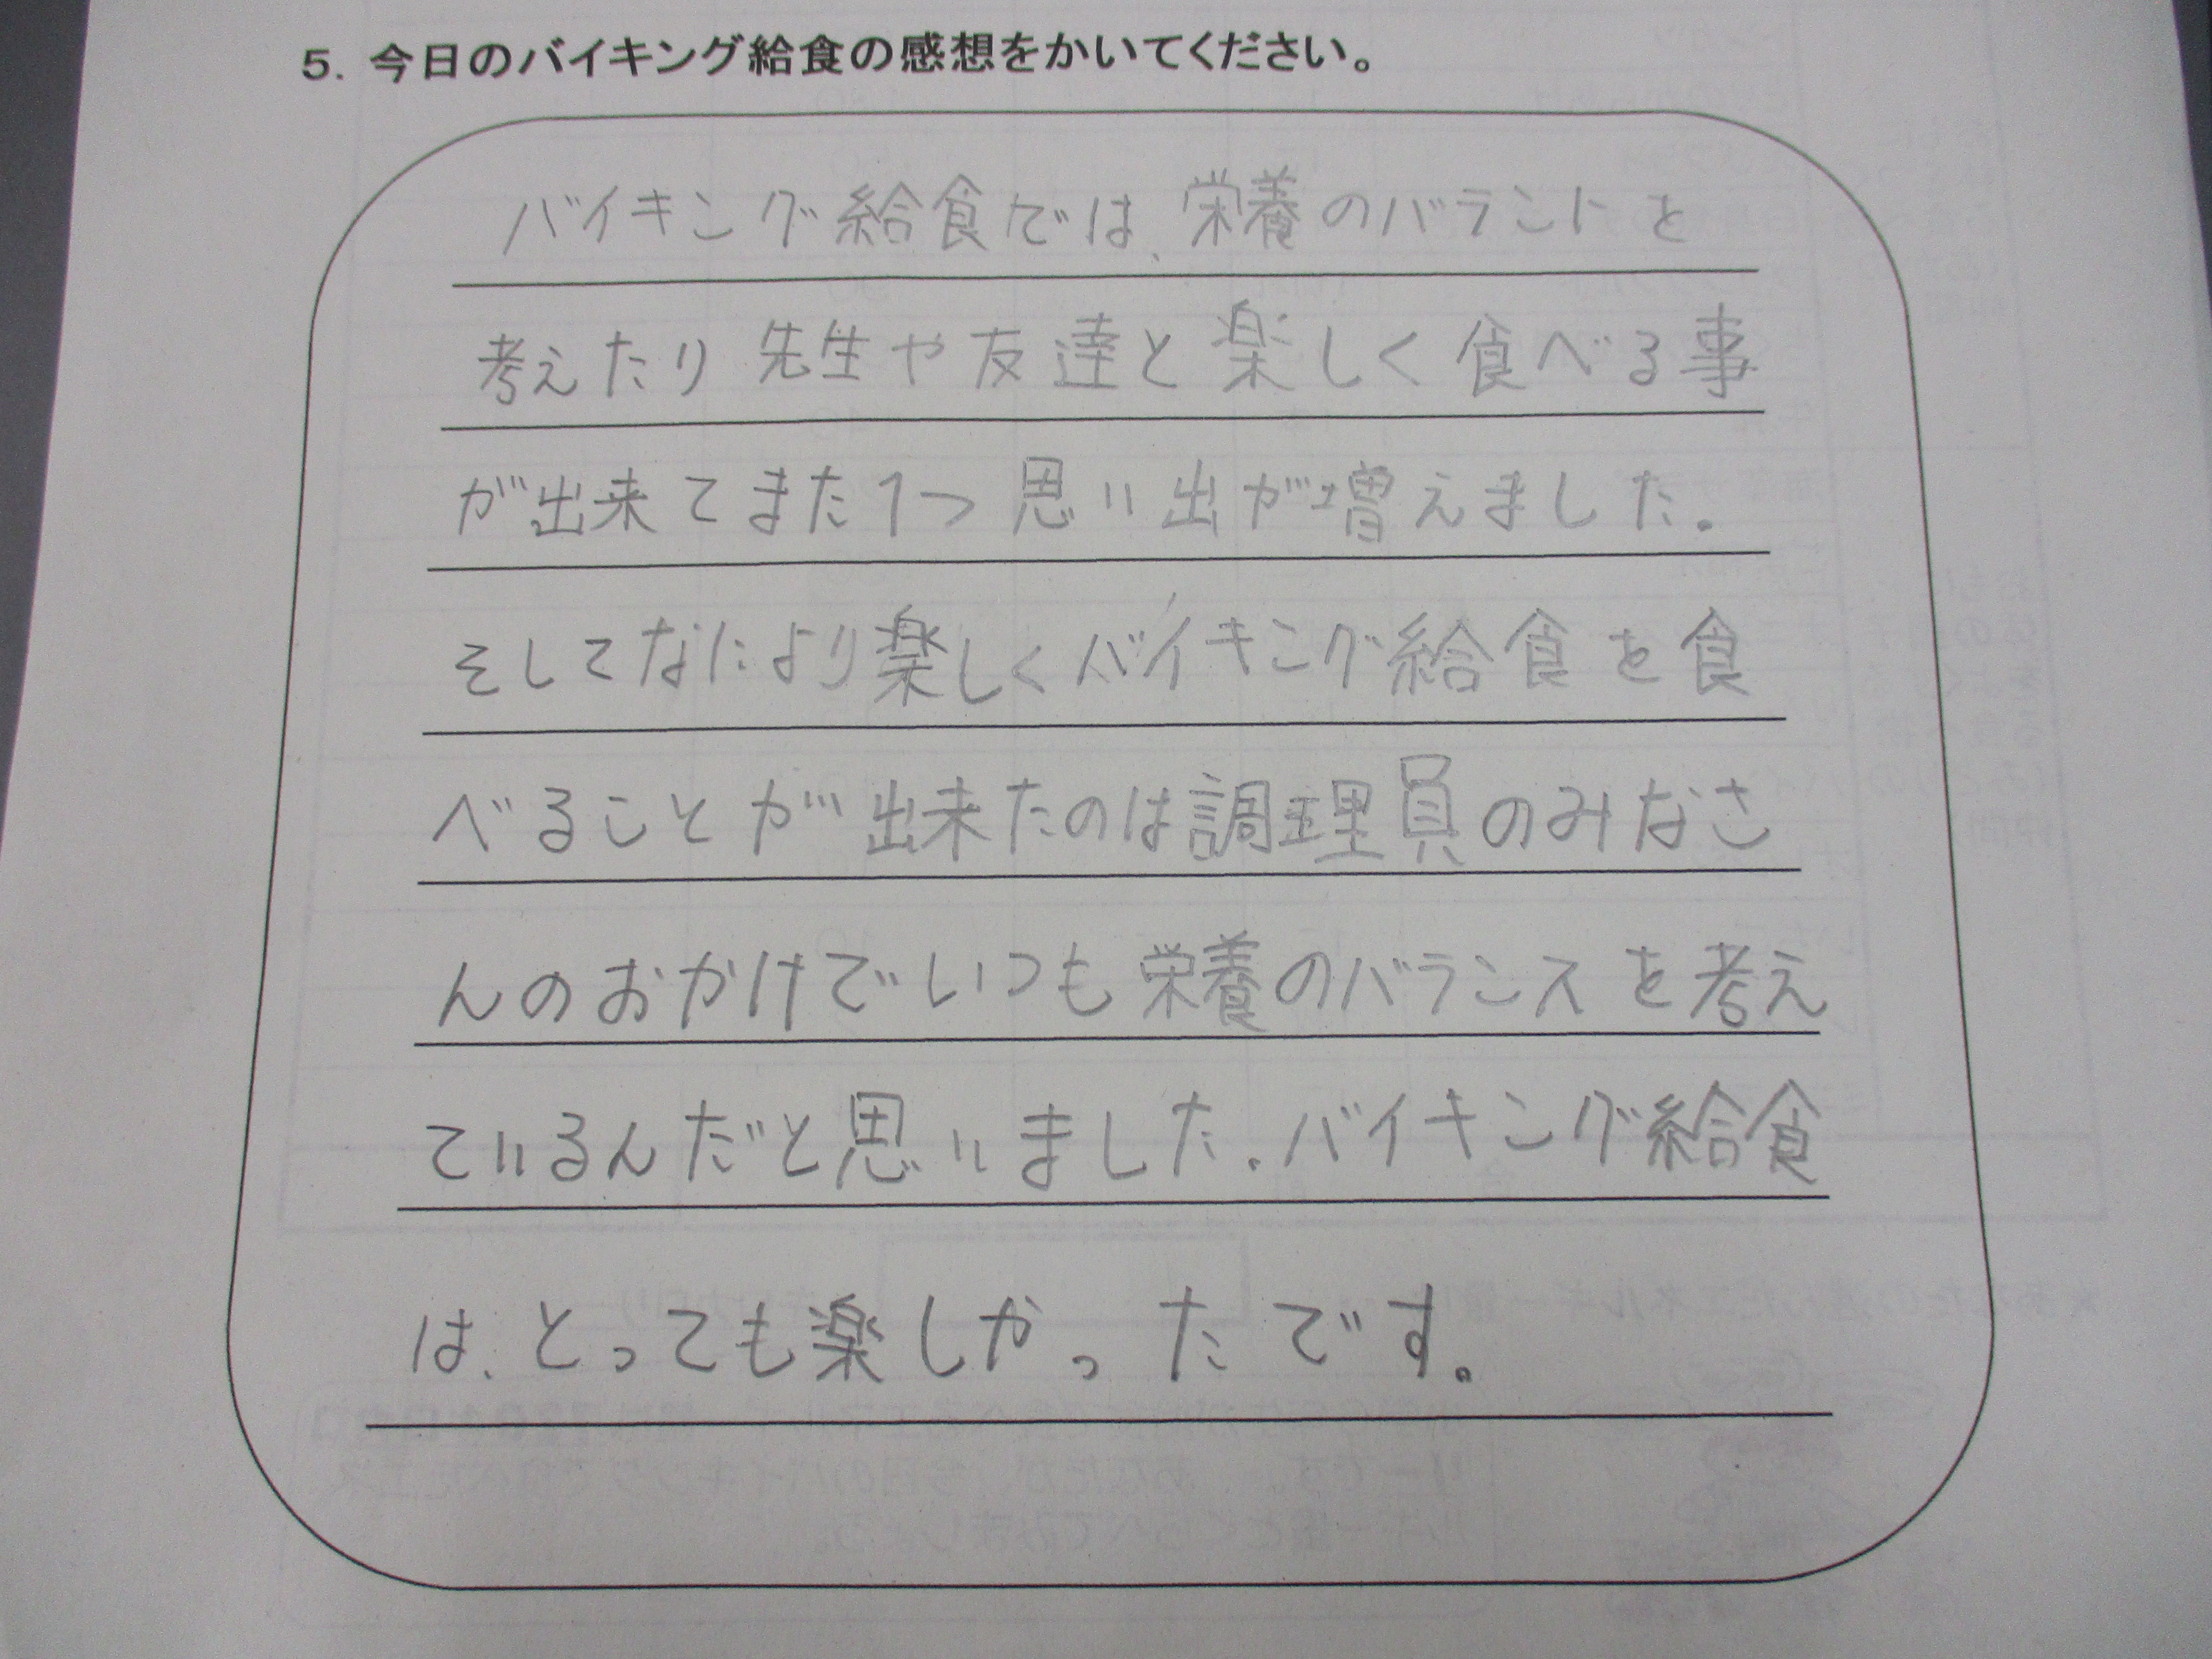 5. 今日のバイキング給食の感想をかいてください。
バイキング給食では、栄養のバラントを
考えたり先生や友達と楽しく食べる事
が出来てまた1つ思い出が増えました。
そしてなにより楽しくバイキング給食を食
べることが出来たのは調理員のみなさ
んのおかけでいつも栄養のバランスを考え
ているんだと思いました。バイキング給食
は、とっても楽しかったです。